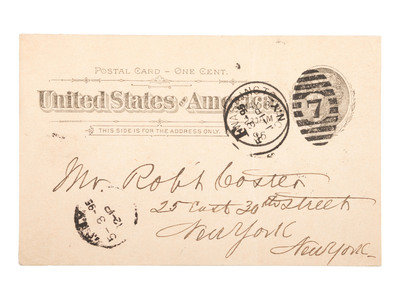 POSTAL CARD – ONE CENT.
United States of America
THIS SIDE IS FOR THE ADDRESS ONLY.
7
Mr. Rob't Coster
25 East 30th Street
New York
New York